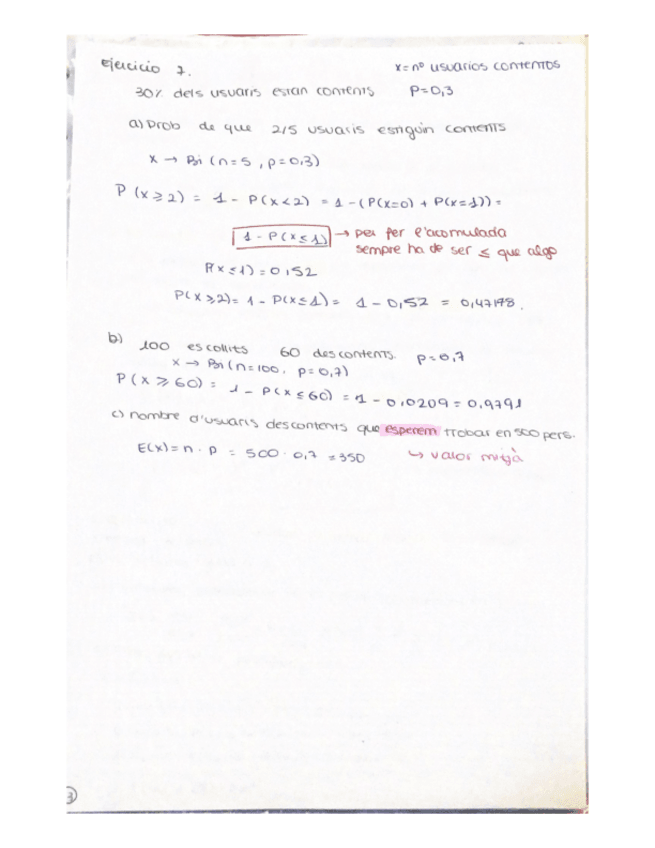 ejercicio 7. x = nº usuarios contentos
30% dels usuaris estan contents P=0,3
a) Prob de que 2/5 usuaris estiguin contents
x → Bi (n=5, p=0,3)
P (x ≥ 2) = 1 - P(x < 2) = 1 - (P(x=0) + P(x=1)) =
1 - P(x ≤ 1) → per fer l'acomulada
sempre ha de ser ≤ que algo
P(x ≤ 1) = 0,52
P(x ≥ 2) = 1 - P(x ≤ 1) = 1 - 0,52 = 0,47178.
b) 100 escollits 60 descontents. p=0,7
x → Bi (n=100, p=0,7)
P (x ≥ 60) = 1 - P(x ≤ 60) = 1 - 0,0209 = 0,9791
c) nombre d'usuaris descontents que esperem trobar en 500 pers.
E(x) = n · p = 500 · 0,7 = 350 ↳ valor mitjà
3